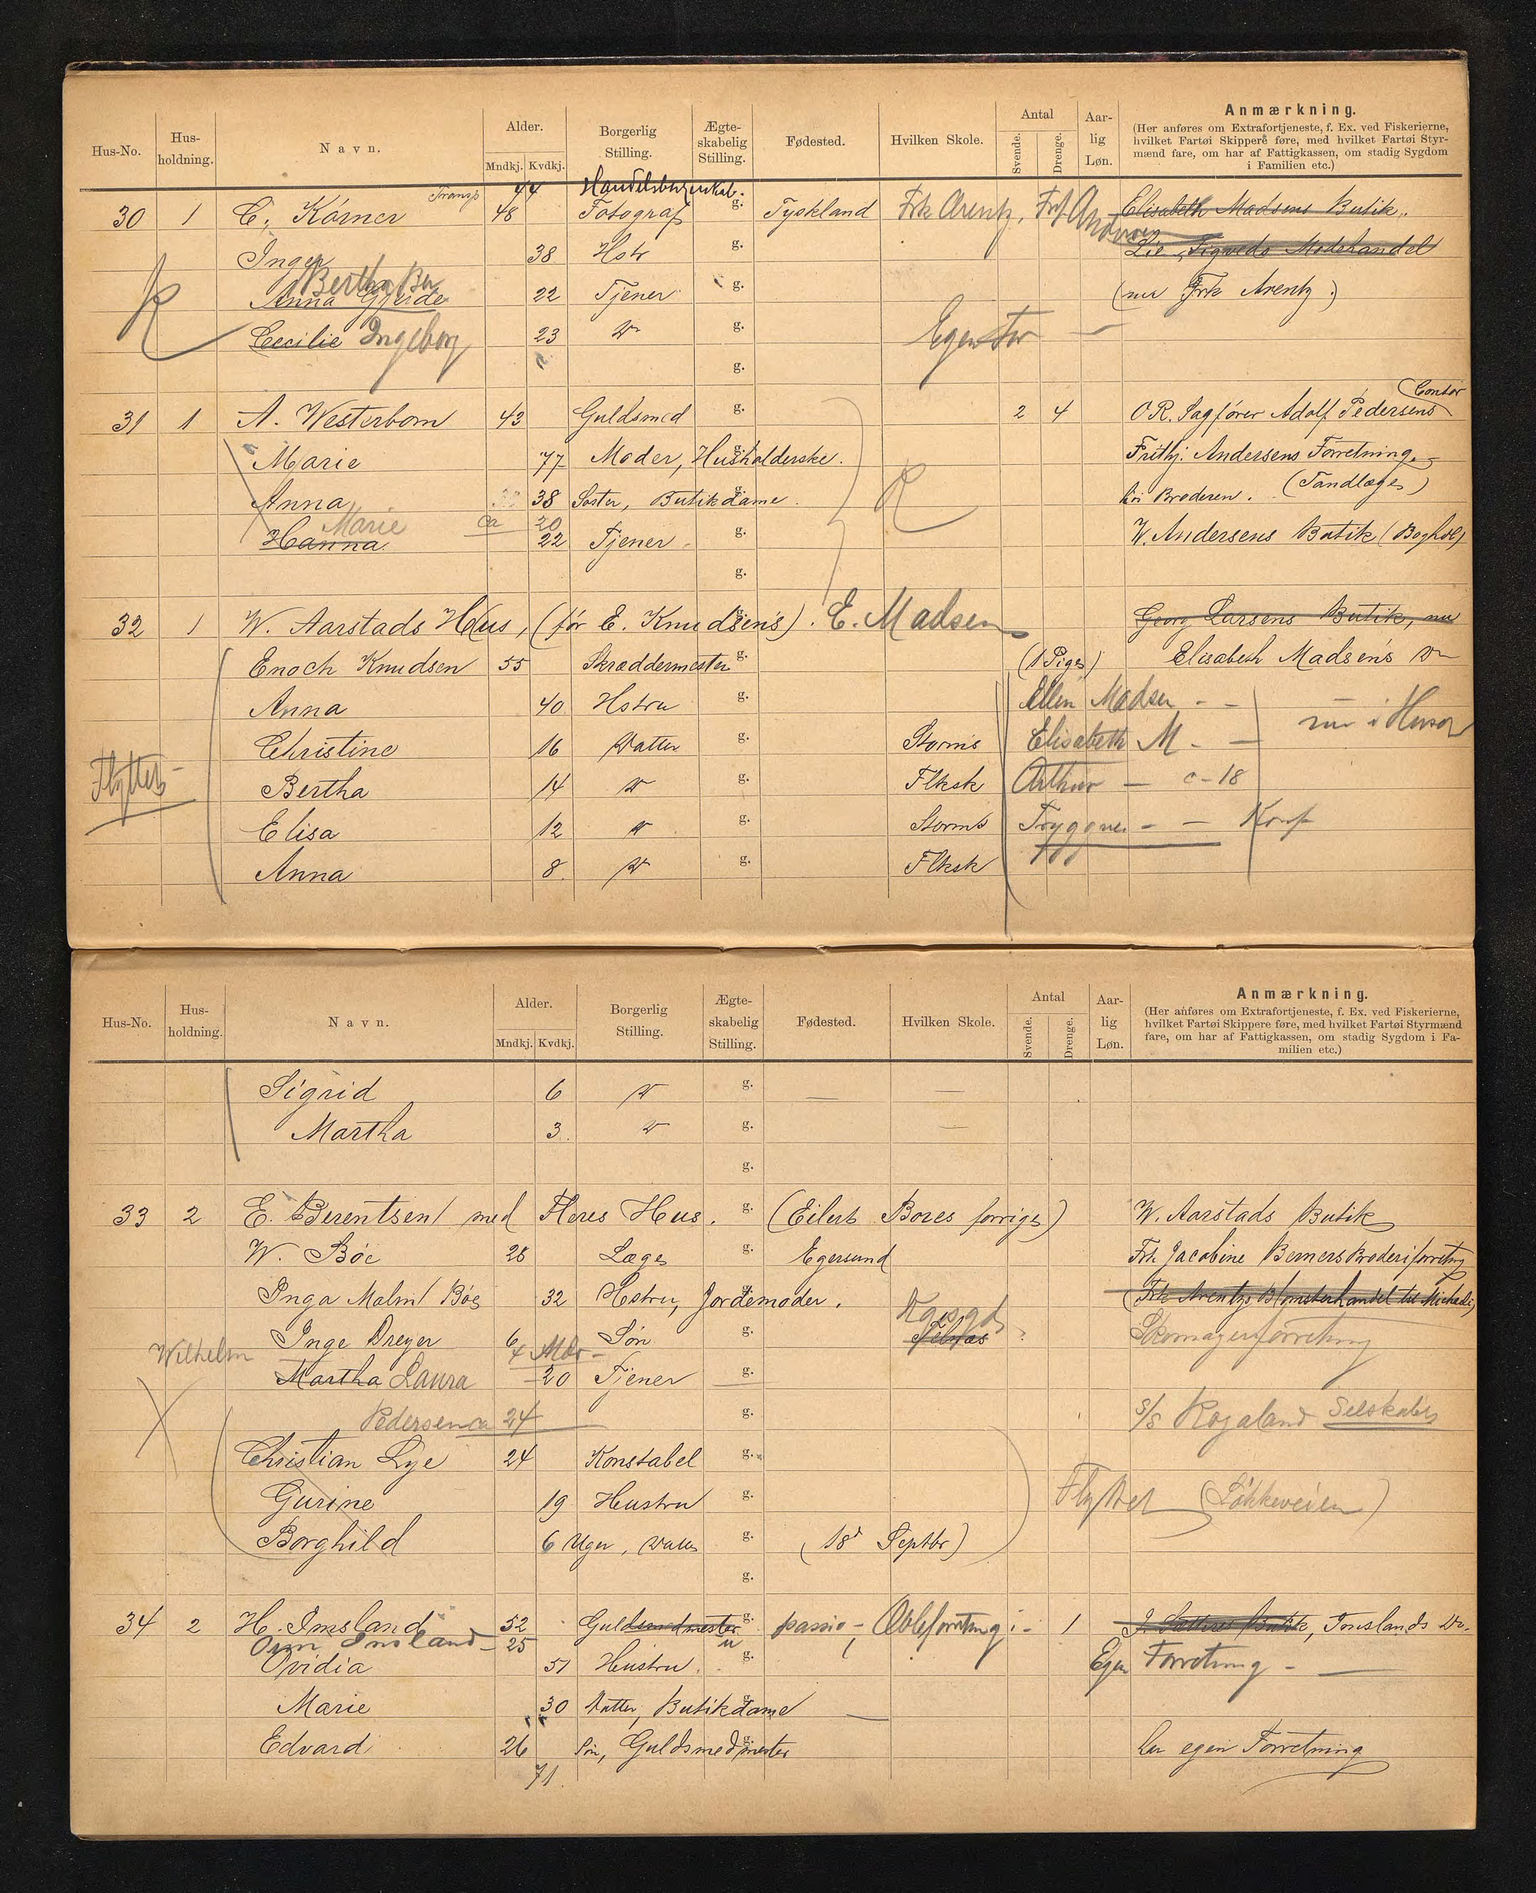 Hus-No. Hus-holdning. Navn. Alder. Mndkj. Kvdkj. Borgerlig Stilling. Ægte-skabelig Stilling. Fødested. Hvilken Skole. Antal Svende. Drenge. Aar-lig Løn. Anmærkning.
(Her anføres om Extrafortjeneste, f. Ex. ved Fiskerierne, hvilket Fartøi Skippere føre, med hvilket Fartøi Styr-mænd fare, om har af Fattigkassen, om stadig Sygdom i Familien etc.)
Transp 44
30 1 C. Körner 48 Fotograf g. Tyskland Frk Arentz, Elisabeth Madsens Butik
Inger 38 Hstr g. Lie, Sigveds Modehandel
Bertha
Anna Gjeide 22 Tjener g. (nu Frk Arentz)
R Cecilie Ingeborg 23 g. Egen For
g.
31 1 A. Westerbom 43 Guldsmed g. 2 4 OR. Sagfører Adolf Pedersens Contor
Marie 77 Moder, Husholderske. g. Frithj. Andersens Forretning
Anna 38 Søster, Butikdame. g. R hos Broderen. (Tandlæge)
Marie ca 20
Hanna 22 Tjener g. W. Andersens Butik (Boghdl)
g.
32 1 W. Aarstads Hus, (før E. Knudsen's). g. E. Madsen Georg Larsens Butik, nu
Enoch Knudsen 55 Skræddermester g. (1 Pige) Elisabeth Madsen's
Anna 40 Hstru g. Ellen Madsen - - nu i Huset
Christine 16 Datter g. Storms Elisabeth M -
Flytter Bertha 14 g. Flksk Arthur - c-18
Elisa 12 g. Storms Tryggve - -
Anna 8 g. Flksk
Hus-No. Hus-holdning. Navn. Alder. Mndkj. Kvdkj. Borgerlig Stilling. Ægte-skabelig Stilling. Fødested. Hvilken Skole. Antal Svende. Drenge. Aar-lig Løn. Anmærkning.
(Her anføres om Extrafortjeneste, f. Ex. ved Fiskerierne, hvilket Fartøi Skippere føre, med hvilket Fartøi Styrmænd fare, om har af Fattigkassen, om stadig Sygdom i Fa-milien etc.)
Sigrid 6 g. —
Martha 3 g. —
g.
33 2 E. Berentsen med Fleres Hus. g. (Eilert Bores forrige) W. Aarstads Butik
W. Böe 28 Læge g. Egersund Frk Jacobine Berners Broderiforretng
Inga Malm Böe 32 Hstru, Jordemoder. g. (Frk Arentzs Blomsterhandel til Michaeli)
Inge Dreyer 6 Søn g. Skomagerforretning
Wilhelm 4 Mdr -
Martha Laura 20 Tjener g.
Pedersen ca 24 g. S/S Rogaland Selskabs
Christian Lye 24 Konstabel g.
Gurine 19 Hustru g. Flyttet (Løkkeveien)
Borghild 6 Uger, Datter g. (18de Septbr)
g.
34 2 H. Imsland 52 Guldsmedmester g. 1 Imslands Do.
Imsland - 25
Ovidia 51 Hustru. g. Egen Forretning -
Marie 30 Datter, Butikdame g. —
Edvard 26 Søn, Guldsmedmester g. har egen Forretning
71.